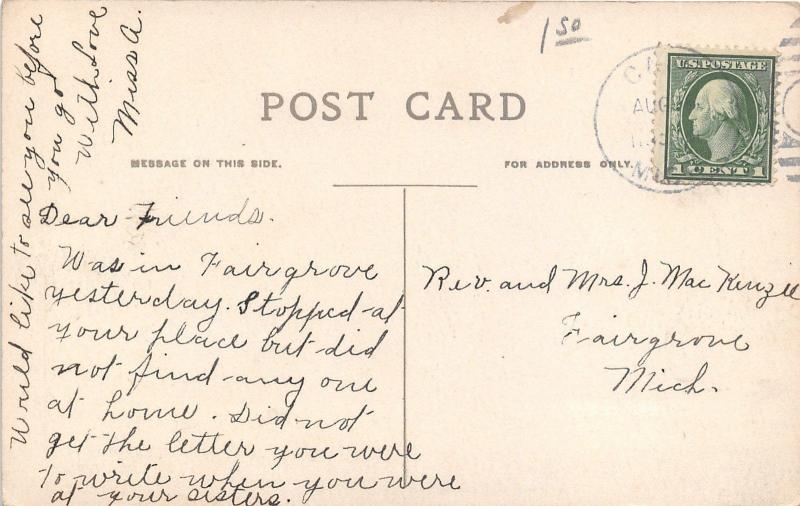 1 50
POST CARD
MESSAGE ON THIS SIDE.
FOR ADDRESS ONLY.
U.S. POSTAGE
1 CENT 1
AUG
Dear Friends.
Was in Fairgrove
yesterday. Stopped at
your place but did
not find any one
at home. Did not
get the letter you were
to write when you were
at your sisters.
Would like to see you before
you go
With Love
Miss A.
Rev. and Mrs. J. MacKenzie
Fairgrove
Mich.